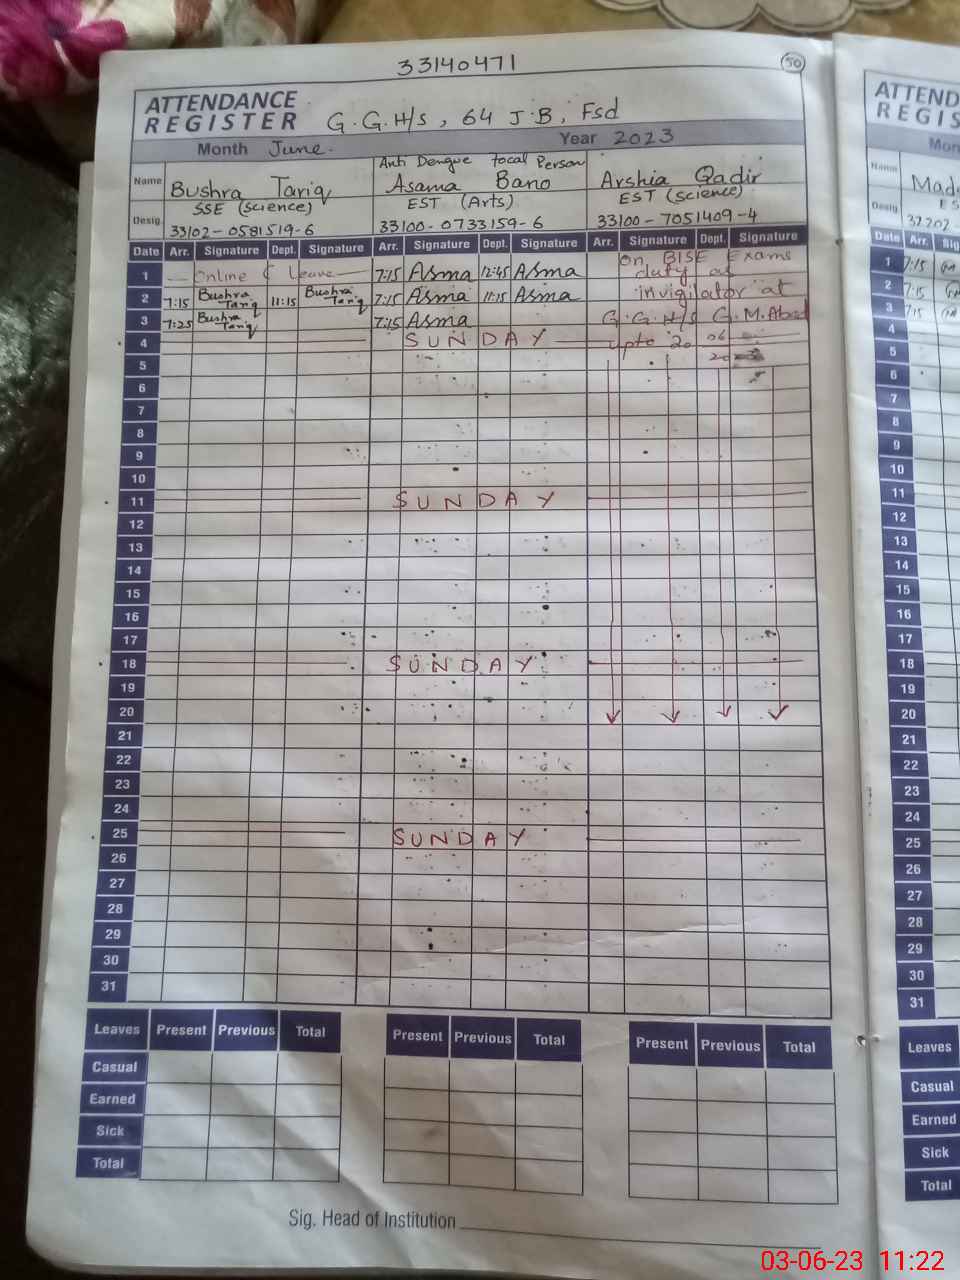 33140471
50
ATTENDANCE
REGISTER
G.G.H/s, 64 J.B, Fsd
Month June.
Year 2023
Anti Dengue focal Person
Name Bushra Tariq Asama Bano Arshia Qadir
SSE (science) EST (Arts) EST (Science)
Desig. 33102-0581519-6 33100-0733159-6 33100-7051409-4
Date Arr. Signature Dept. Signature Arr. Signature Dept. Signature Arr. Signature Dept. Signature
1 Online Leave 7:15 Asma 12:45 Asma On BISE Exams
duty as
2 7:15 Bushra Tariq 11:15 Bushra Tariq 7:15 Asma 11:15 Asma invigilator at
3 7:25 Bushra Tariq 7:15 Asma G.G.H/s G.M.Abad
4 SUNDAY upto 20 06
5
6
7
8
9
10
11 SUNDAY
12
13
14
15
16
17
18 SUNDAY
19
20
21
22
23
24
25 SUNDAY
26
27
28
29
30
31
Leaves Present Previous Total Present Previous Total Present Previous Total
Casual
Earned
Sick
Total
Sig. Head of Institution
ATTEND
REGIS
Mon
Name Mad
ES
Desig. 37202-
Date Arr. Sig
1 7:15
2 7:15
3 7:15
4
5
6
7
8
9
10
11
12
13
14
15
16
17
18
19
20
21
22
23
24
25
26
27
28
29
30
31
Leaves
Casual
Earned
Sick
Total
03-06-23 11:22